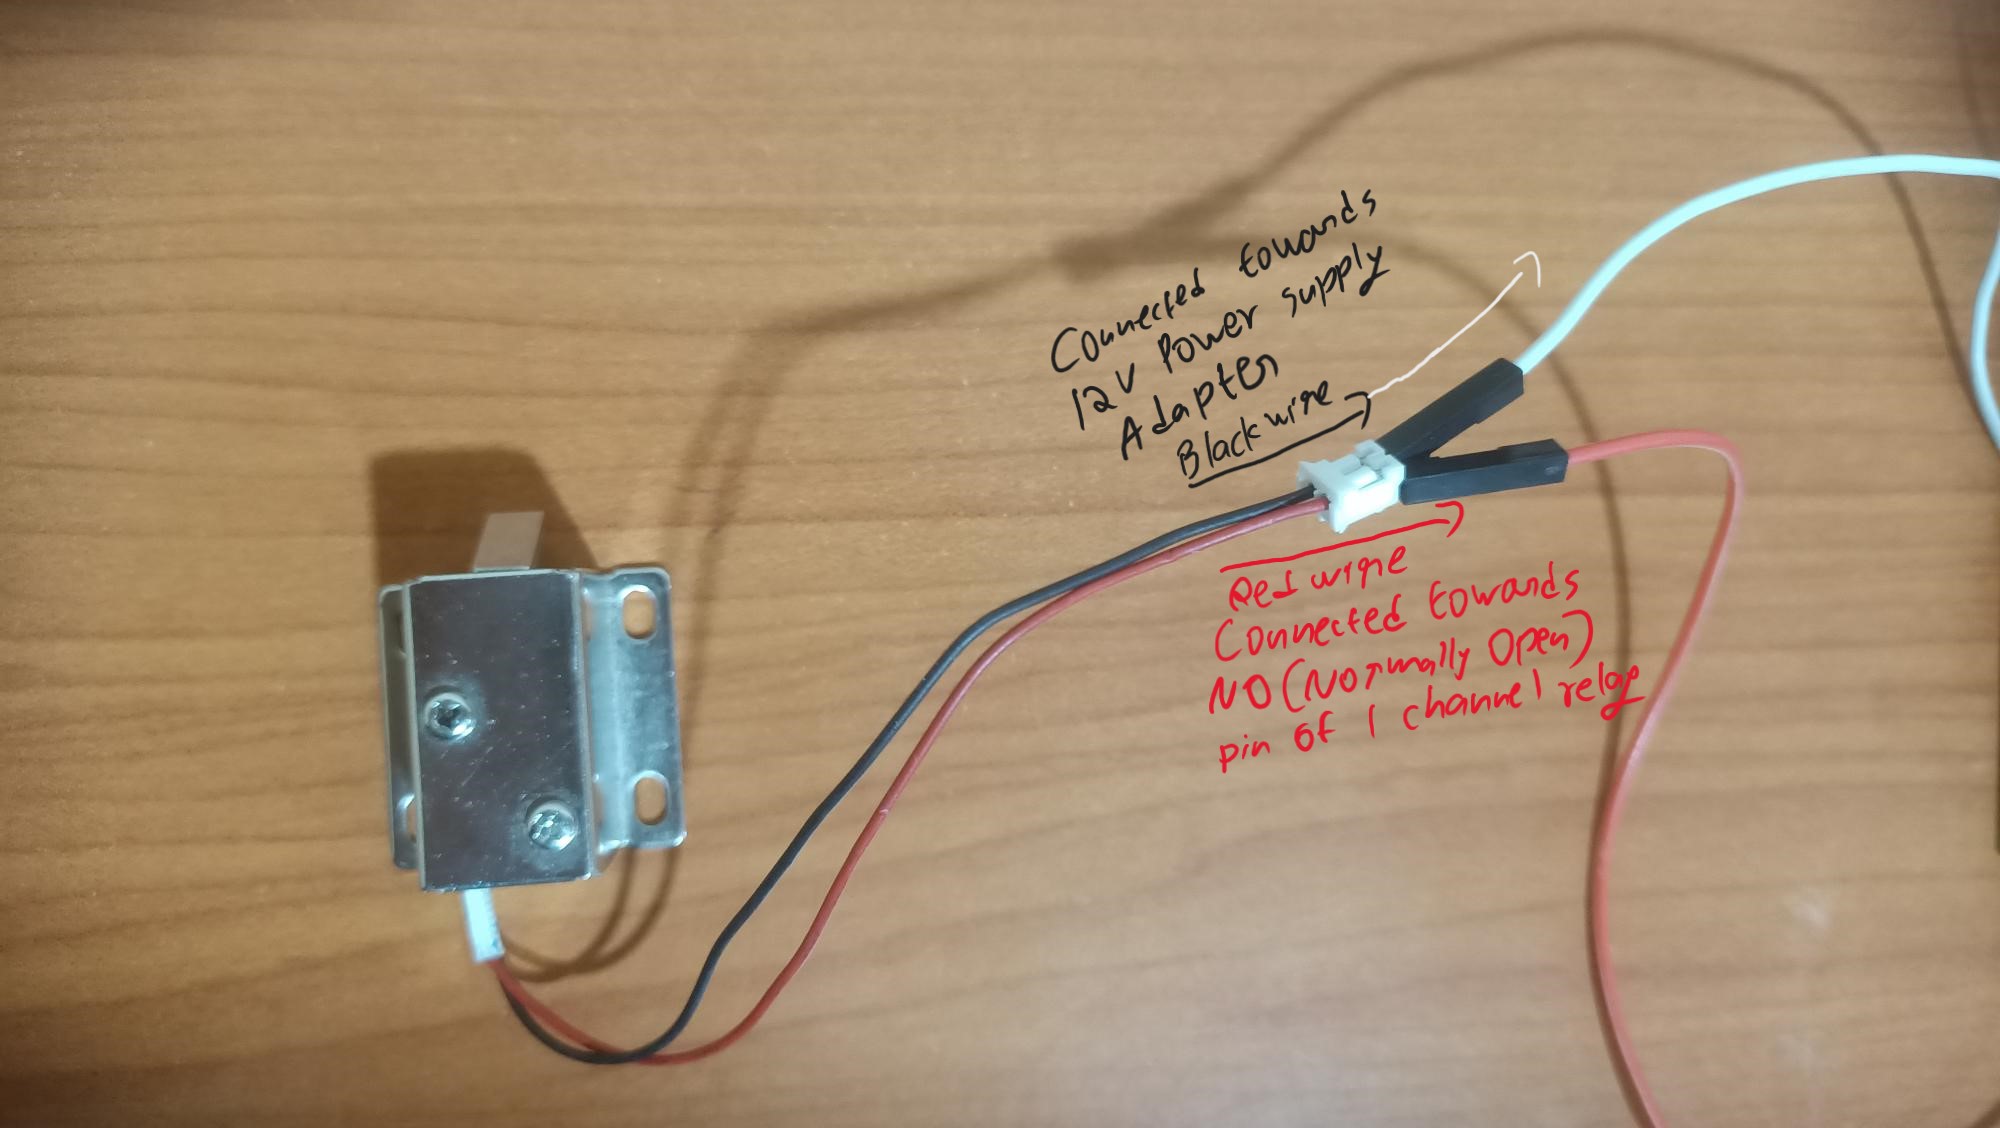 Connected towards
12V Power supply
Adapter
Black wire
Red wire
Connected towards
NO (Normally Open)
pin of 1 channel relay